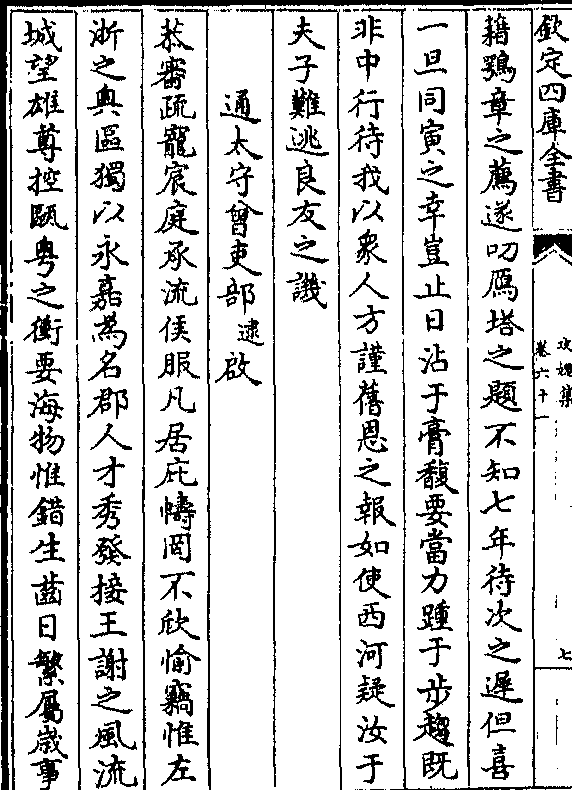 欽定四庫全書
攻媿集
卷六十一
七
藉鶚章之薦遂叨鴈塔之題不知七年待次之遲但喜
一旦同寅之幸豈止日沾于膏馥要當力踵于步趨既
非中行待我以衆人方謹舊恩之報如使西河疑汝于
夫子難逃良友之譏
通太守曾吏部逮啟
恭審疏寵宸庭承流侯服凡居庇幬罔不欣愉竊惟左
浙之奥區獨以永嘉為名郡人才秀發接王謝之風流
城望雄尊控甌粤之衝要海物惟錯生齒日繁屬歲事